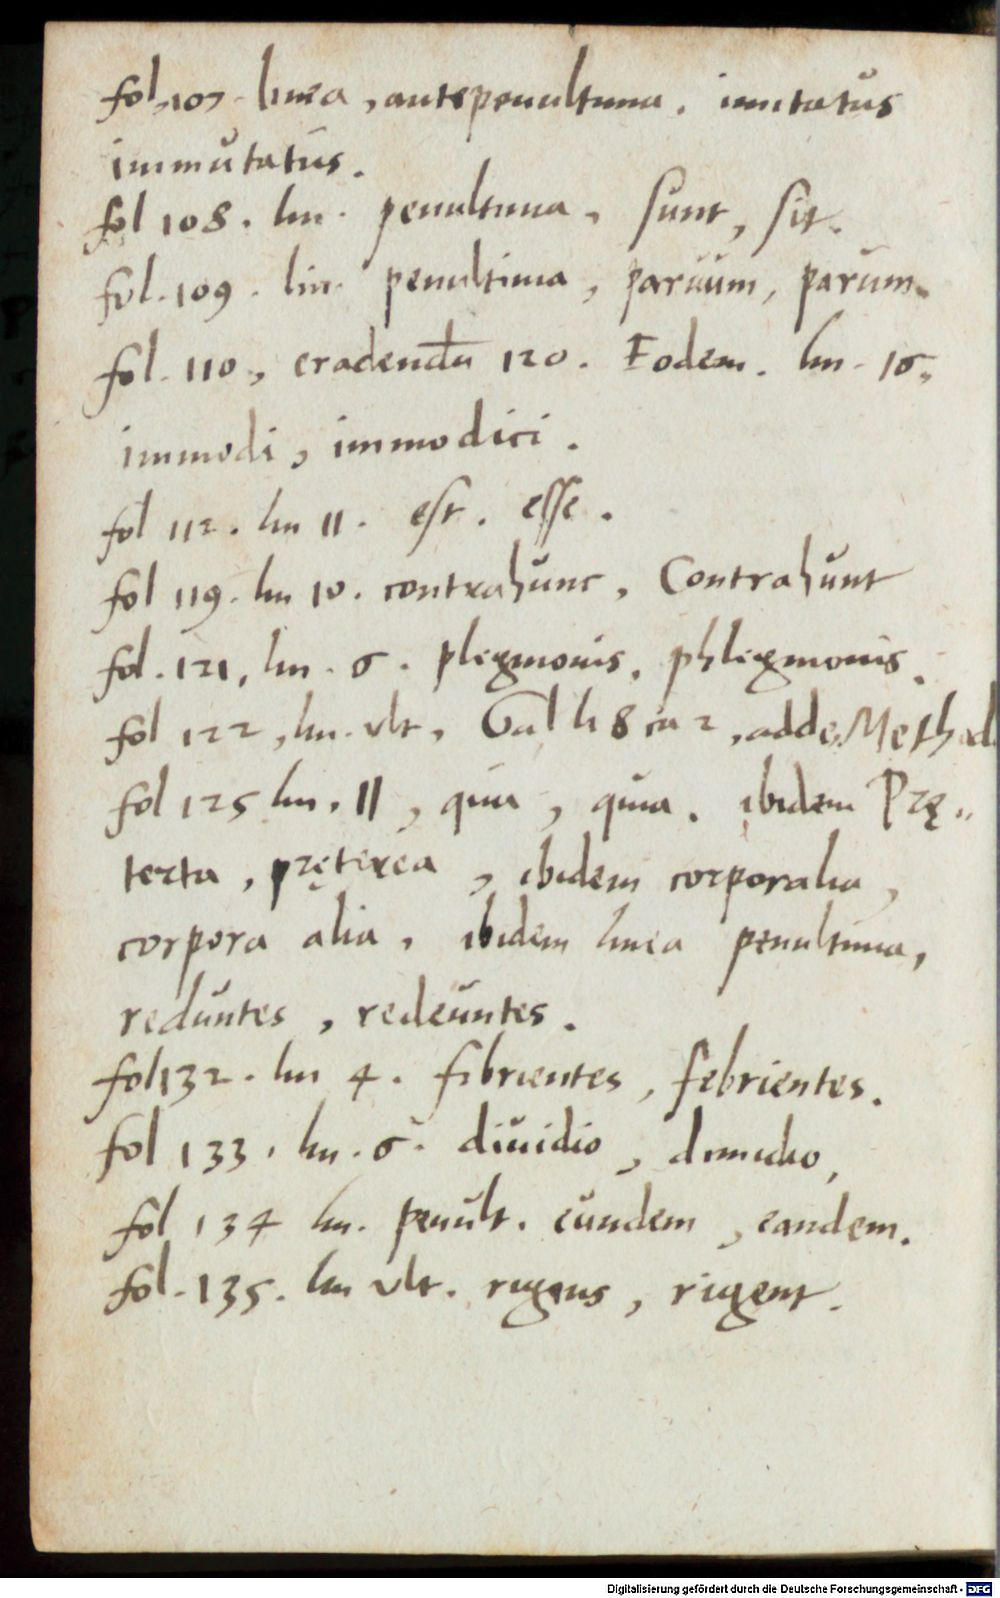 fol. 107. linea, antepenultima. imitatus
immutatus.
fol 108. lin. penultima, sunt, sit.
fol. 109. lin. penultima, paruum, parum.
fol. 110, eradendũ 120. Eodem. lin. 16,
immodi, immodici.
fol 112. lin 11. est. esse.
fol 119. lin 10. contrahunc, Contrahunt
fol. 121, lin. 6. plegmonis, phlegmonis.
fol 122, lin. vlt, Gal li 8 ca 2, adde, Method
fol 125 lin. 11, qiua, quia. ibidem Prę-
terta, pręterea, ibidem corporalia,
corpora alia, ibidem linea penultima,
reduntes, redeuntes.
fol 132. lin 4. fibrientes, febrientes.
fol 133. lin. 6. diuidio, dimidio,
fol 134 lin. penult. eundem, eandem.
fol. 135. lin vlt. rigens, rigent.
Digitalisierung gefördert durch die Deutsche Forschungsgemeinschaft - DFG